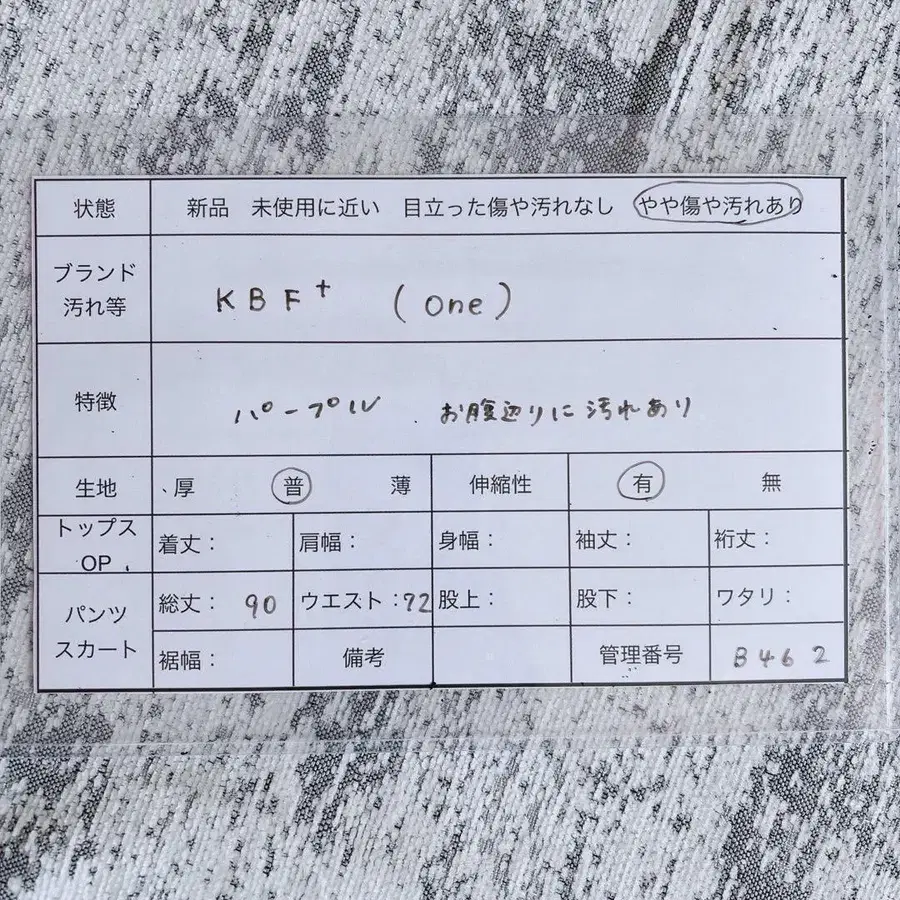 状態 新品 未使用に近い 目立った傷や汚れなし やや傷や汚れあり
ブランド
汚れ等
KBF+ (one)
特徴 パープル お腹辺りに汚れあり
生地 厚 普 薄 伸縮性 有 無
トップス
OP
着丈: 肩幅: 身幅: 袖丈: 裄丈:
パンツ
スカート
総丈: 90 ウエスト:72 股上: 股下: ワタリ:
裾幅: 備考 管理番号 B462